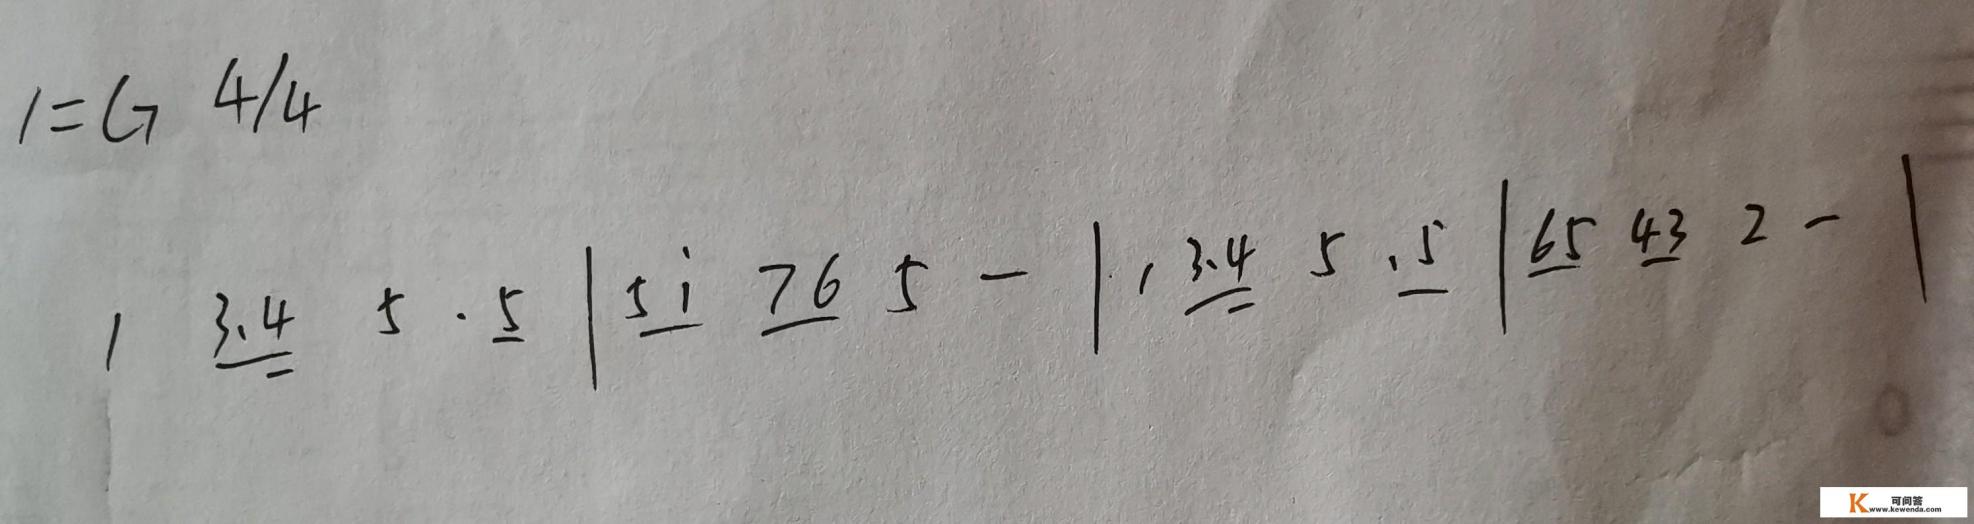 1=G 4/4
1 3.4 5 . 5 | 5 i 7 6 5 - | 1 3.4 5 . 5 | 65 43 2 - |
K 可问答
www.kewenda.com